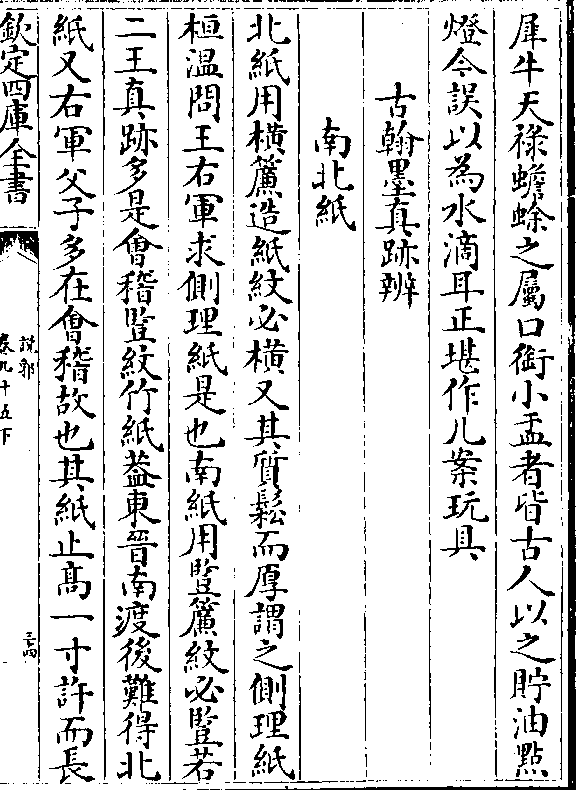 犀牛天祿蟾蜍之屬口銜小盂者皆古人以之貯油點
燈今誤以為水滴耳正堪作几案玩具
古翰墨真跡辨
南北紙
北紙用橫簾造紙紋必橫又其質鬆而厚謂之側理紙
桓溫問王右軍求側理紙是也南紙用豎簾紋必豎若
二王真跡多是會稽豎紋竹紙蓋東晉南渡後難得北
紙又右軍父子多在會稽故也其紙止髙一寸許而長
欽定四庫全書
說郛
卷九十五下